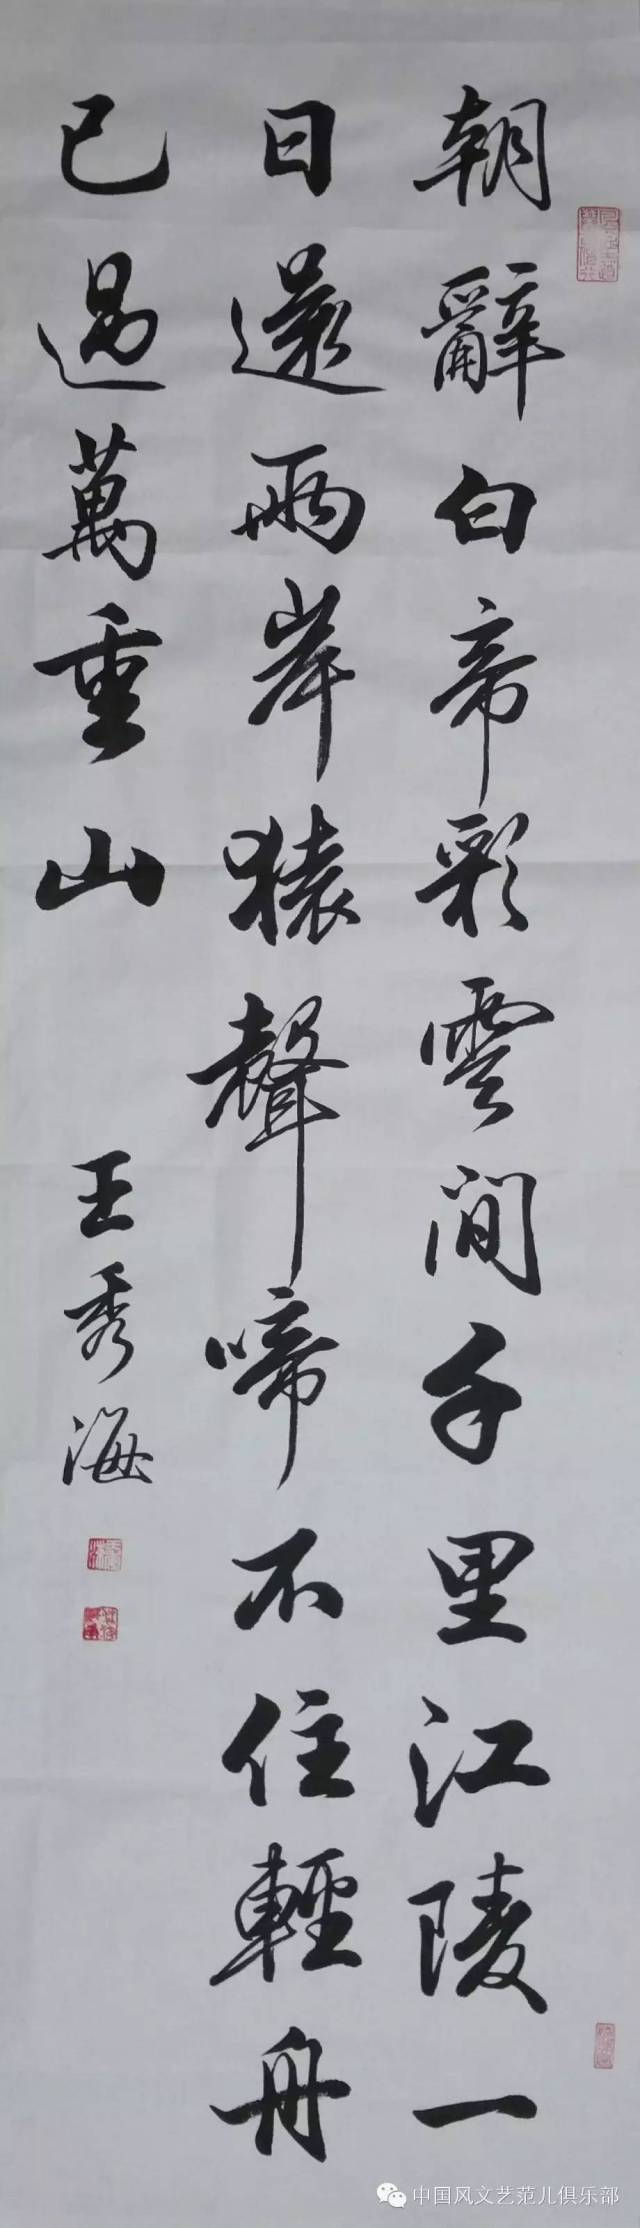 朝辭白帝彩雲間千里江陵一
日還兩岸猿聲啼不住輕舟
已過萬重山
王秀海
中国风文艺范儿俱乐部